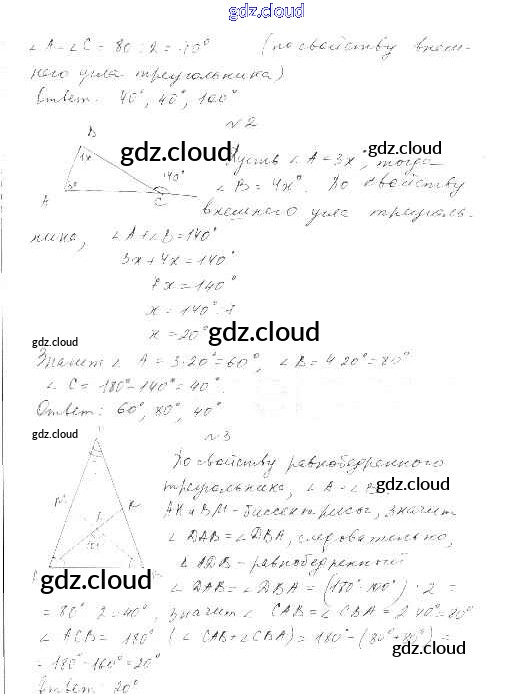 gdz.cloud
∠A=∠C = 80 : 2 = 40° (по свойству внеш-
него угла треугольника)
Ответ: 40°, 40°, 100°
№2
B
4x gdz.cloud gdz.cloud
140° Пусть ∠A = 3x°, тогда
∠B = 4x°. По свойству
A 3x° C gdz.cloud
внешнего угла треуголь-
ника, ∠A+∠B = 140°
3x + 4x = 140°
7x = 140°
x = 140° : 7
x = 20°
gdz.cloud gdz.cloud
Значит ∠A = 3·20° = 60°, ∠B = 4·20° = 80°
∠C = 180° - 140° = 40°.
Ответ: 60°, 80°, 40°
gdz.cloud №3
По свойству равнобедренного
треугольника, ∠A = ∠B.
gdz.cloud
M K AK и BM - биссектрисы, значит
∠DAB = ∠DBA, следовательно,
100° ΔADB - равнобедренный
gdz.cloud gdz.cloud
∠DAB = ∠DBA = (180° - 100°) : 2 =
= 80° : 2 = 40°, значит ∠CAB = ∠CBA = 2·40° = 80°
∠ACB = 180° - (∠CAB + ∠CBA) = 180° - (80° + 80°) =
gdz.cloud
= 180° - 160° = 20°
Ответ: 20°